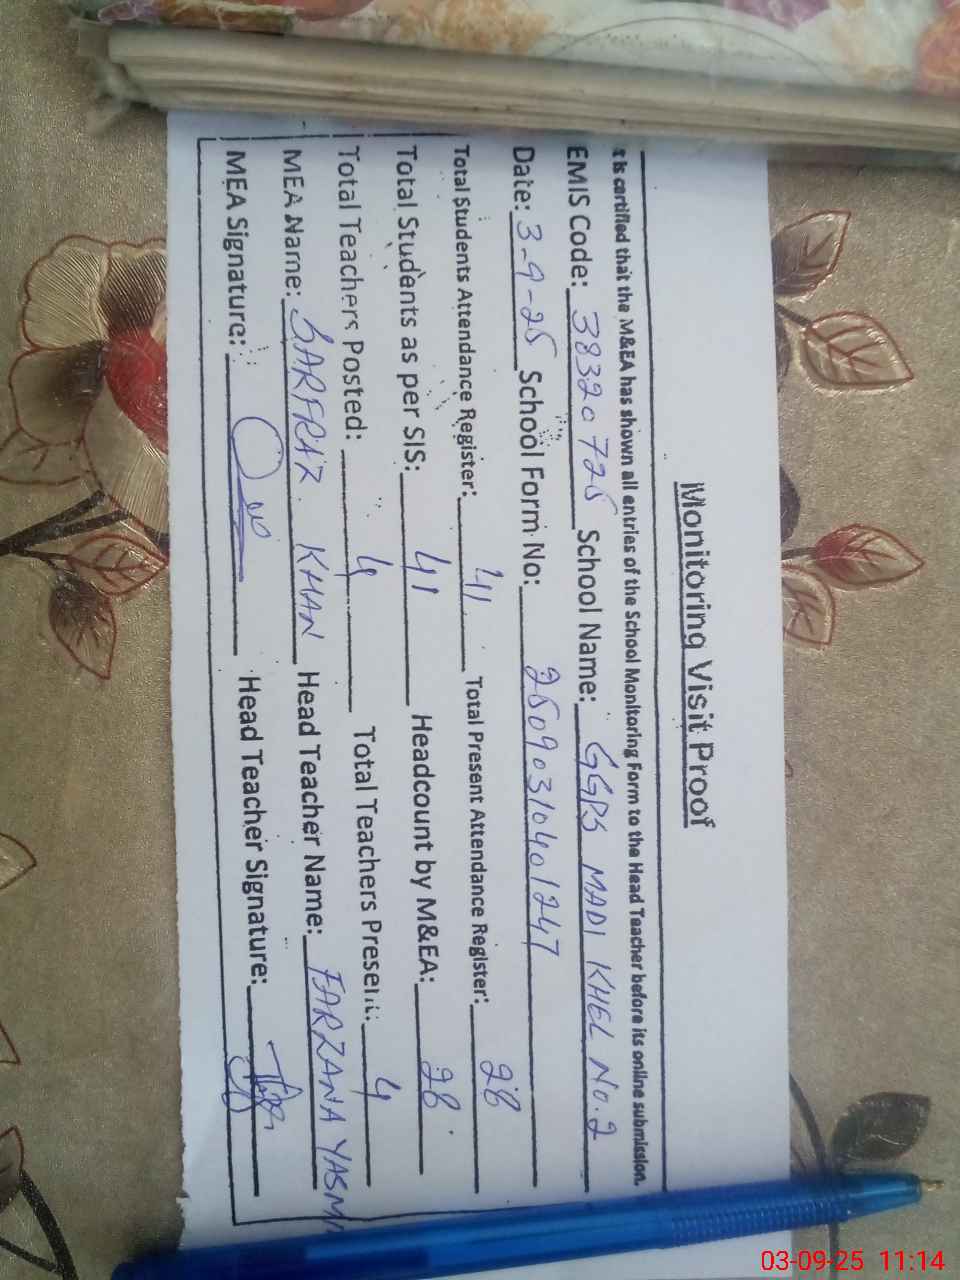 Monitoring Visit Proof
It is certified that the M&EA has shown all entries of the School Monitoring Form to the Head Teacher before its online submission.
EMIS Code: 38320725 School Name: GGPS MADI KHEL No. 2
Date: 3-9-25 School Form No: 25090310401247
Total Students Attendance Register: 41 Total Present Attendance Register: 28
Total Students as per SIS: 41 Headcount by M&EA: 28
Total Teachers Posted: 4 Total Teachers Present: 4
MEA Name: SARFRAZ KHAN Head Teacher Name: FARZANA YASMI
MEA Signature: Head Teacher Signature:
03-09-25 11:14